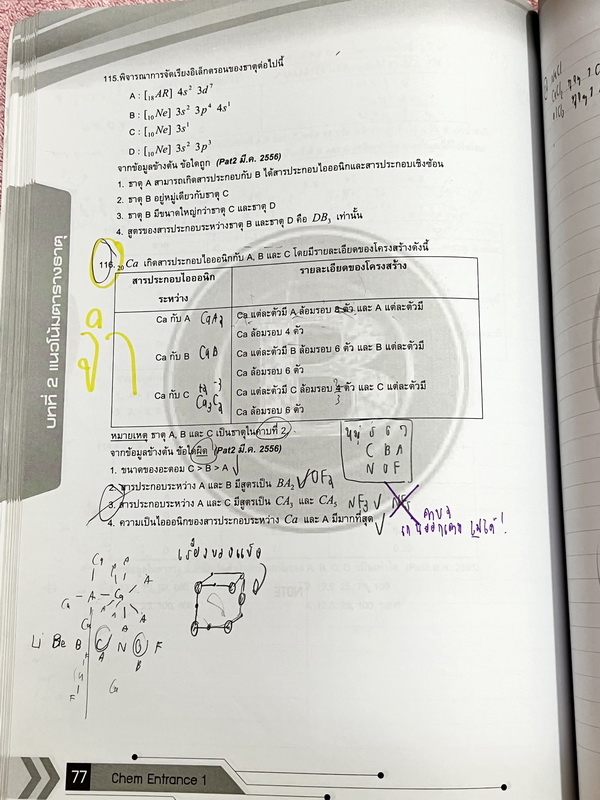 115.พิจารณาการจัดเรียงอิเล็กตรอนของธาตุต่อไปนี้
A : [₁₈AR] 4s² 3d⁷
B : [₁₀Ne] 3s² 3p⁴ 4s¹
C : [₁₀Ne] 3s¹
D : [₁₀Ne] 3s² 3p³
จากข้อมูลข้างต้น ข้อใดถูก (Pat2 มี.ค. 2556)
1. ธาตุ A สามารถเกิดสารประกอบกับ B ได้สารประกอบไอออนิกและสารประกอบเชิงซ้อน
2. ธาตุ B อยู่หมู่เดียวกับธาตุ C
3. ธาตุ B มีขนาดใหญ่กว่าธาตุ C และธาตุ D
4. สูตรของสารประกอบระหว่างธาตุ B และธาตุ D คือ DB₃ เท่านั้น
116. ₂₀Ca เกิดสารประกอบไอออนิกกับ A, B และ C โดยมีรายละเอียดของโครงสร้างดังนี้
สารประกอบไอออนิกระหว่าง
รายละเอียดของโครงสร้าง
Ca กับ A CaA₂
Ca แต่ละตัวมี A ล้อมรอบ 8 ตัว และ A แต่ละตัวมี
Ca ล้อมรอบ 4 ตัว
Ca กับ B CaB
Ca แต่ละตัวมี B ล้อมรอบ 6 ตัว และ B แต่ละตัวมี
Ca ล้อมรอบ 6 ตัว
Ca กับ C Ca₃C₂
Ca แต่ละตัวมี C ล้อมรอบ 4 ตัว และ C แต่ละตัวมี
3
Ca ล้อมรอบ 6 ตัว
จำ
หมายเหตุ ธาตุ A, B และ C เป็นธาตุในคาบที่ 2
จากข้อมูลข้างต้น ข้อใดผิด (Pat2 มี.ค. 2556)
หมู่ 5 6 7
C B A
N O F
1. ขนาดของอะตอม C > B > A
2. สารประกอบระหว่าง A และ B มีสูตรเป็น BA₂ OF₂
3. สารประกอบระหว่าง A และ C มีสูตรเป็น CA₃ และ CA₅ NF₃ NF₅
4. ความเป็นไอออนิกของสารประกอบระหว่าง Ca และ A มีมากที่สุด
คาบ 2
ไม่ได้!
เรื่องของแข็ง
Li Be B C N O F
A B
บทที่ 2 แนวโน้มตารางธาตุ
77 Chem Entrance 1